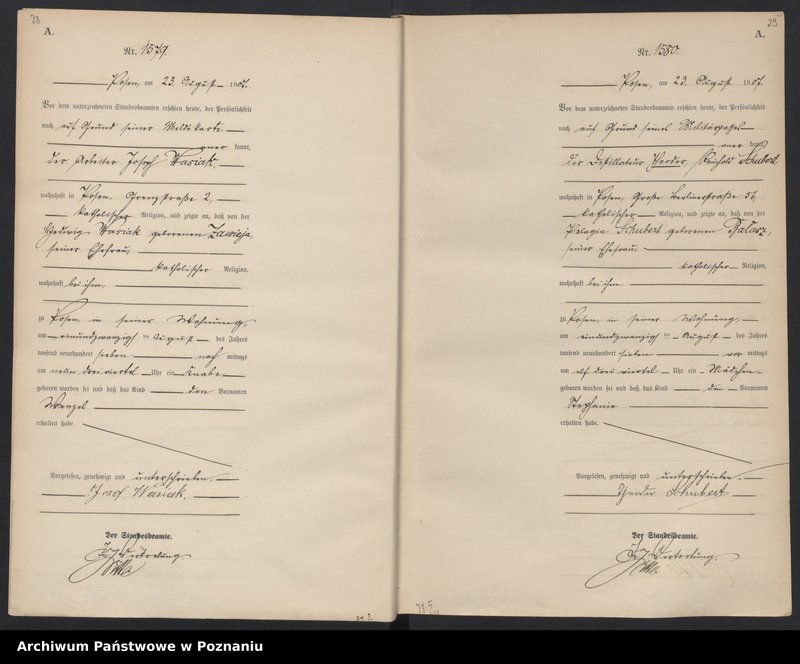 28
A.
Nr. 1579.
Posen, am 23. August 1907.
Vor dem unterzeichneten Standesbeamten erschien heute, der Persönlichkeit
nach auf Grund seiner Meldekarte
aner kannt,
der Arbeiter Joseph Wasiak,
wohnhaft in Posen, Grenzstraße 2,
katholischer Religion, und zeigte an, daß von der
Hedwig Wasiak geborenen Zawieja,
seiner Ehefrau,
katholischer Religion,
wohnhaft bei ihm,
zu Posen, in seiner Wohnung,
am einundzwanzigsten August des Jahres
tausend neunhundert sieben nach mittags
um neun dreiviertel Uhr ein Knabe
geboren worden sei und daß das Kind den Vornamen
Wenzel
erhalten habe.
Vorgelesen, genehmigt und unterschrieben.
Jozef Wasiak.
Der Standesbeamte.
In Vertretung.
29
A.
Nr. 1580.
Posen, am 23. August 1907
Vor dem unterzeichneten Standesbeamten erschien heute, der Persönlichkeit
nach auf Grund seines Militärpasses
aner kannt,
der Destillateur Theodor, Schubert,
wohnhaft in Posen, Große Berlinerstraße 56,
katholischer Religion, und zeigte an, daß von der
Pelagia Schubert geborenen
seiner Ehefrau,
katholischer Religion,
wohnhaft bei ihm
zu Posen, in seiner Wohnung,
am einundzwanzigsten August des Jahres
tausend neunhundert sieben vor mittags
um elf drei viertel Uhr ein Mädchen
geboren worden sei und daß das Kind den Vornamen
Stephanie
erhalten habe.
Vorgelesen, genehmigt und unterschrieben.
Theodor Schubert
Der Standesbeamte.
In Vertretung.
Archiwum Państwowe w Poznaniu